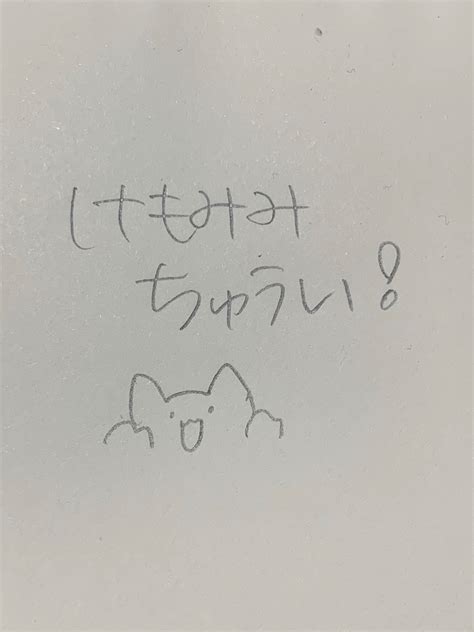 けもみみ
ちゅうい!